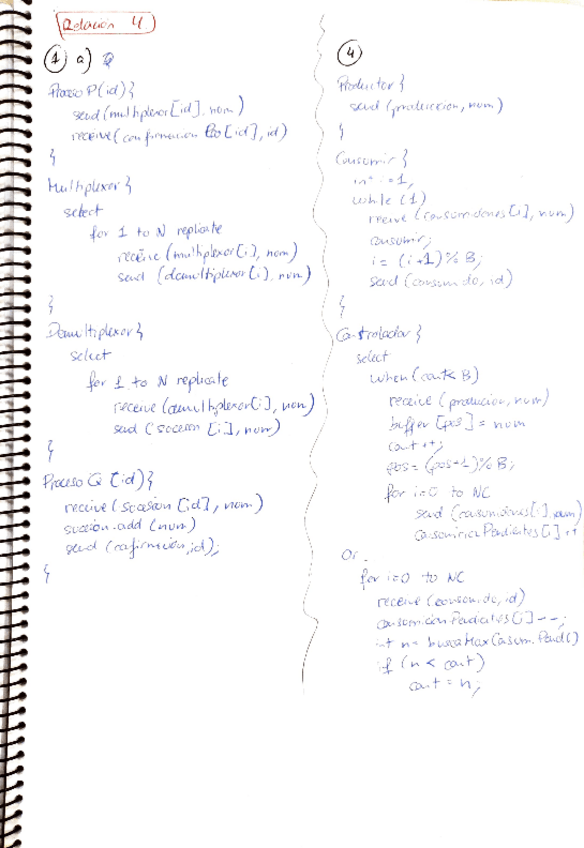 Relación 4
1 a)
Proceso P(id){
send(multiplexor[id], nom)
receive(confirmacion[id], id)
}
Multiplexor {
select
for 1 to N replicate
receive (multiplexor[i], nom)
send (demultiplexor[i], num)
}
Demultiplexor {
select
for 1 to N replicate
receive (demultiplexor[i], nom)
send (sucesion [i], num)
}
Proceso Q (id) {
receive (sucesion [id], nom)
sucesion.add (num)
send (confirmación, id);
}
4
Productor {
send (produccion, num)
}
Consumir {
int i=1,
while (1)
receive (consumiciones[i], num)
consumir;
i = (i+1)%B;
send (consumido, id)
}
Controlador {
select
when (cont < B)
receive (produccion, num)
buffer [pos] = num
cont ++;
pos = (pos+1)%B;
for i=0 to NC
send (consumiciones[i], num)
consumicionPendientes[i]++
Or
for i=0 to NC
receive (consumido, id)
consumicionPendientes[i]--;
int n = buscaMaxConsum.Pend()
if (n < cont)
cont = n;